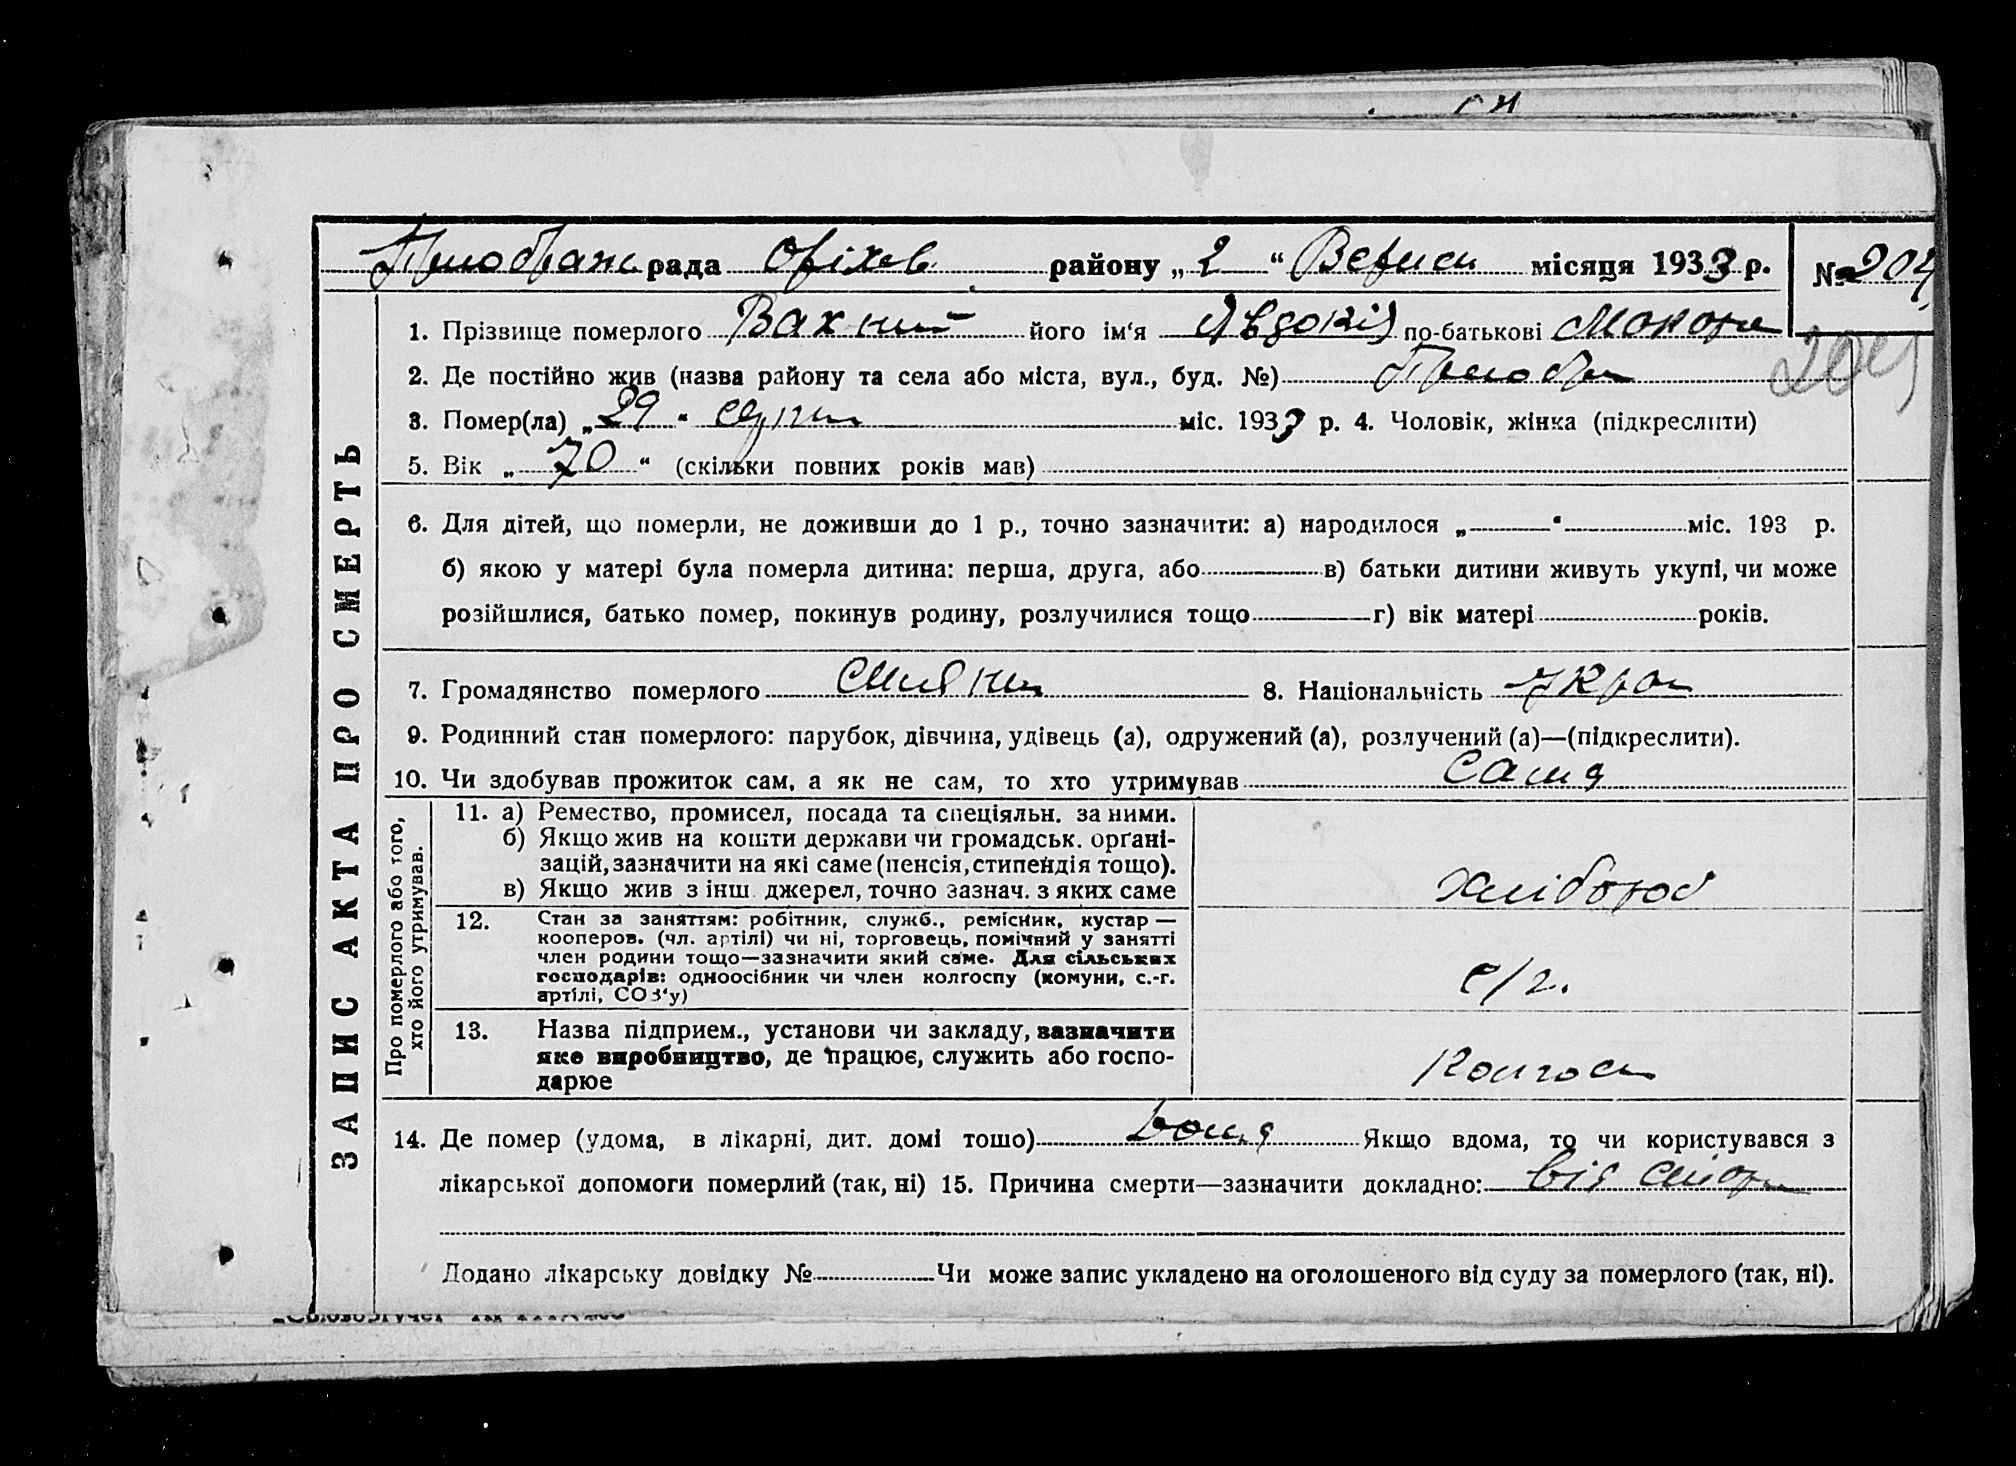 Преображен рада Оріхів району „ 2 “ Вересн місяця 1933 р. № 204
204
ЗАПИС АКТА ПРО СМЕРТЬ
1. Прізвище померлого Вахний його ім‘я Явдокія по-батькові Макарів
2. Де постійно жив (назва району та села або міста, вул., буд. №) Преобр
3. Помер(ла) „ 29 “ серпн міс. 1933 р. 4. Чоловік, жінка (підкреслити)
5. Вік „ 70 “ (скільки повних років мав)
6. Для дітей, що померли, не доживши до 1 р., точно зазначити: а) народилося „ “ міс. 193 р.
б) якою у матері була померла дитина: перша, друга, або в) батьки дитини живуть укупі, чи може
розійшлися, батько помер, покинув родину, розлучилися тощо г) вік матері років.
7. Громадянство померлого 8. Національність Укра
9. Родинний стан померлого: парубок, дівчина, удівець (а), одружений (а), розлучений (а)—(підкреслити).
10. Чи здобував прожиток сам, а як не сам, то хто утримував сама
Про померлого або того,
хто його утримував.
11. а) Ремество, промисел, посада та спеціяльн. за ними.
б) Якщо жив на кошти держави чи громадськ. орґані-
зацій, зазначити на які саме (пенсія, стипендія тощо).
в) Якщо жив з інш. джерел, точно зазнач. з яких саме
хлібороб
12. Стан за заняттям: робітник, служб., ремісник, кустар —
кооперов. (чл. артілі) чи ні, торговець, помічний у занятті
член родини тощо—зазначити який саме. Для сільських
господарів: одноосібник чи член колгоспу (комуни, с.-г.
артілі, СОЗ‘у)
с/г.
13. Назва підприєм., установи чи закладу, зазначити
яке виробництво, де працює, служить або госпо-
дарює
Колгосп
14. Де помер (удома, в лікарні, дит. домі тощо) Дома Якщо вдома, то чи користувався з
лікарської допомоги померлий (так, ні) 15. Причина смерти—зазначити докладно: від старо
Додано лікарську довідку № Чи може запис укладено на оголошеного від суду за померлого (так, ні).